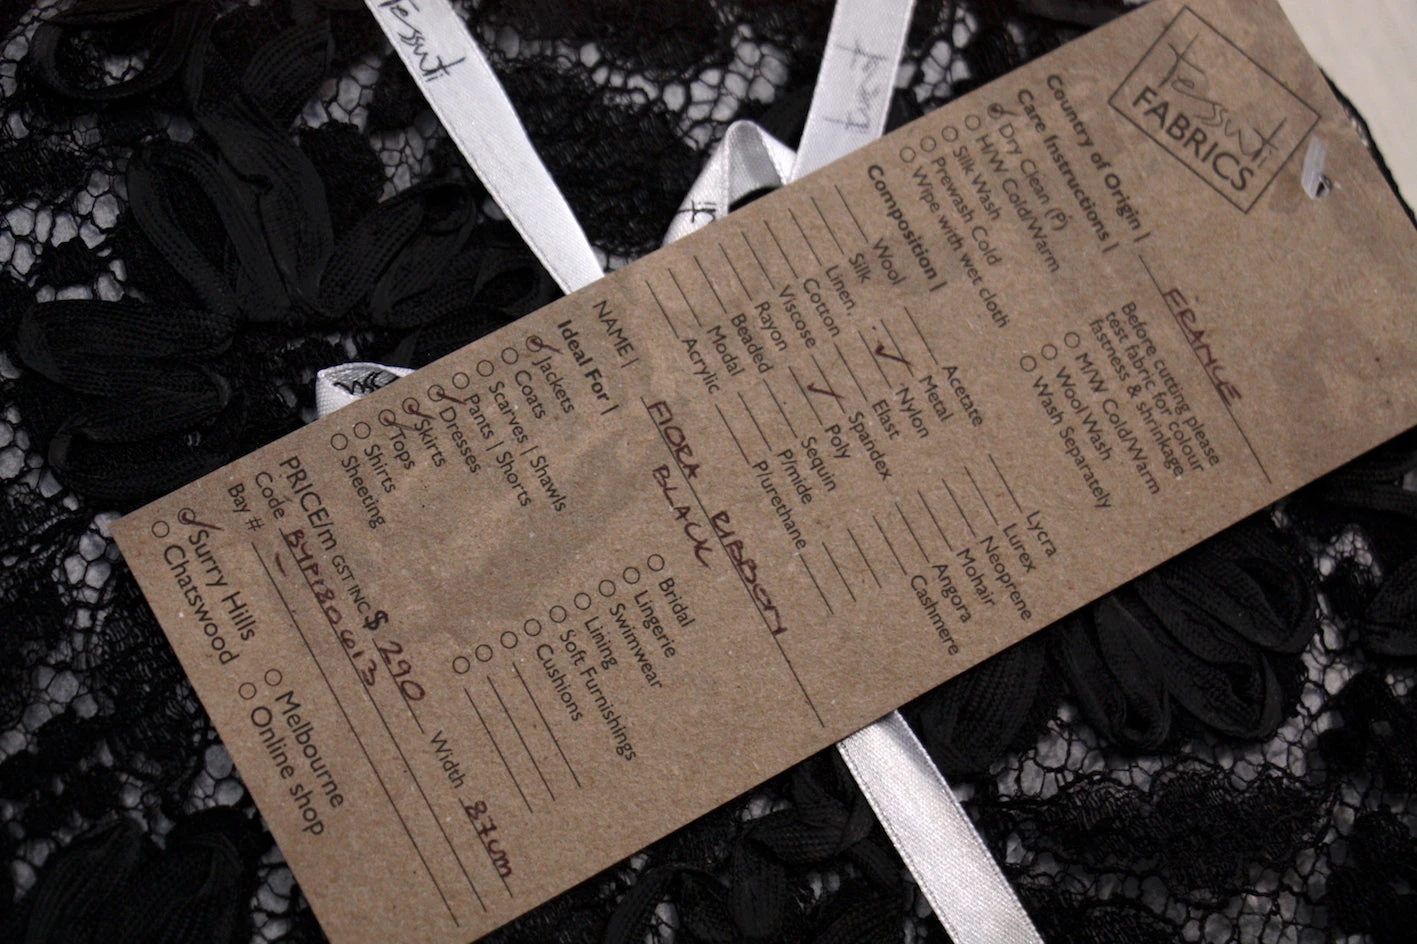 Tessuti
Tessuti
Tessuti
FABRICS
Country of Origin | FRANCE
Care Instructions |
Dry Clean (P)
H/W Cold/Warm
Silk Wash
Prewash Cold
Wipe with wet cloth
Before cutting please
test fabric for colour
fastness & shrinkage
M/W Cold/Warm
Wool Wash
Wash Separately
Composition |
Wool
Silk
Linen
Cotton
Viscose
Rayon
Beaded
Modal
Acrylic
Acetate
Metal
✓ Nylon
Elast
Spandex
✓ Poly
Sequin
P/mide
P/urethane
Lycra
Lurex
Neoprene
Mohair
Angora
Cashmere
NAME | FIORA RIBBON
BLACK
Ideal For |
Jackets
Coats
Scarves | Shawls
Pants | Shorts
Dresses
Skirts
Tops
Shirts
Sheeting
Bridal
Lingerie
Swimwear
Lining
Soft Furnishings
Cushions
PRICE/m GST INC $ 290 Width 87cm
Code BYP180613
Bay #
Surry Hills
Chatswood
Melbourne
Online shop